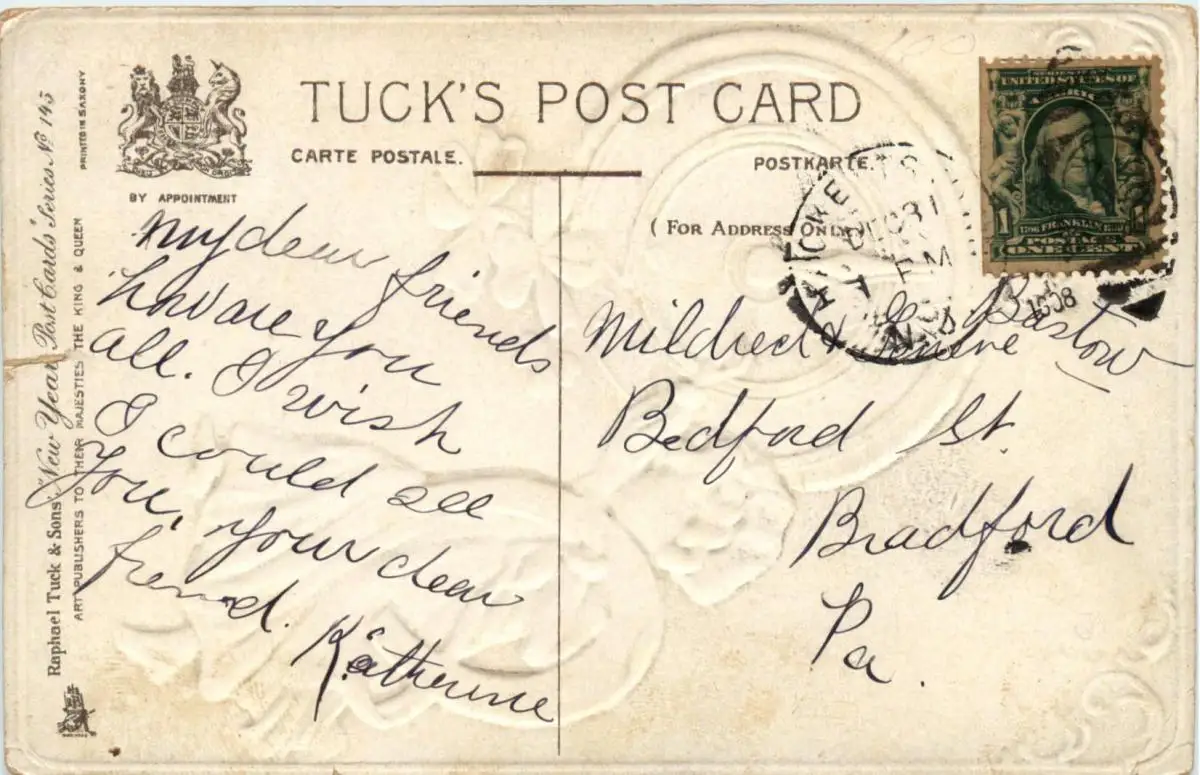 TUCK'S POST CARD
CARTE POSTALE.
POSTKARTE.
(FOR ADDRESS ONLY
BY APPOINTMENT
Raphael Tuck & Sons' "New Year" Post Cards" Series No 145
ART PUBLISHERS TO THEIR MAJESTIES THE KING & QUEEN
PRINTED IN SAXONY
My dear friends
how are you
all. I wish
I could see
you, your dear
friend.
Katherine
DEC 31
PM
1908
SERIES 1902
UNITED STATES OF
AMERIC
1706 FRANKLIN 1790
1
POSTAGE
ONE CENT
Mildred & Barstow
Bedford St.
Bradford
Pa.